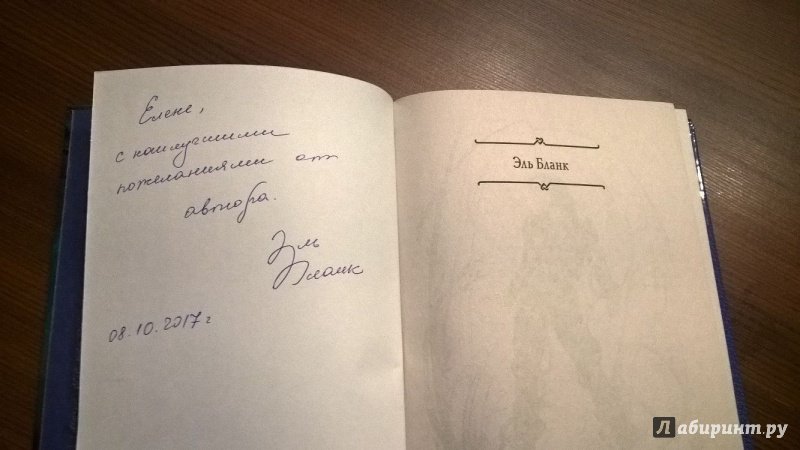 Елене,
с наилучшими
пожеланиями от
автора.
Эль
Бланк
08.10.2017 г
Эль Бланк
Лабиринт.ру